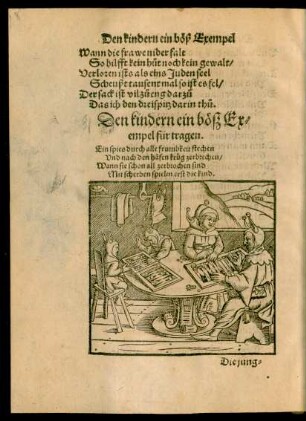 Den kindern ein böß Exempel
Wann die frawe nider falt
So hilfft kein hůt noch kein gewalt/
Verloren ists als eins Juden seel
Scheuß tausent mal so ist es fel/
Der sack ist vil zů eng darzů
Das ich den dreispitz darin thů.
Den kindern ein böß Ex=
empel für tragen.
Ein spies durch alle frumbkeit stechen
Und nach den häfen krůg zerbrechen/
Wann sie schon all zerbrochen sind
Mit scherben spielen erst die kind.
Die jung=